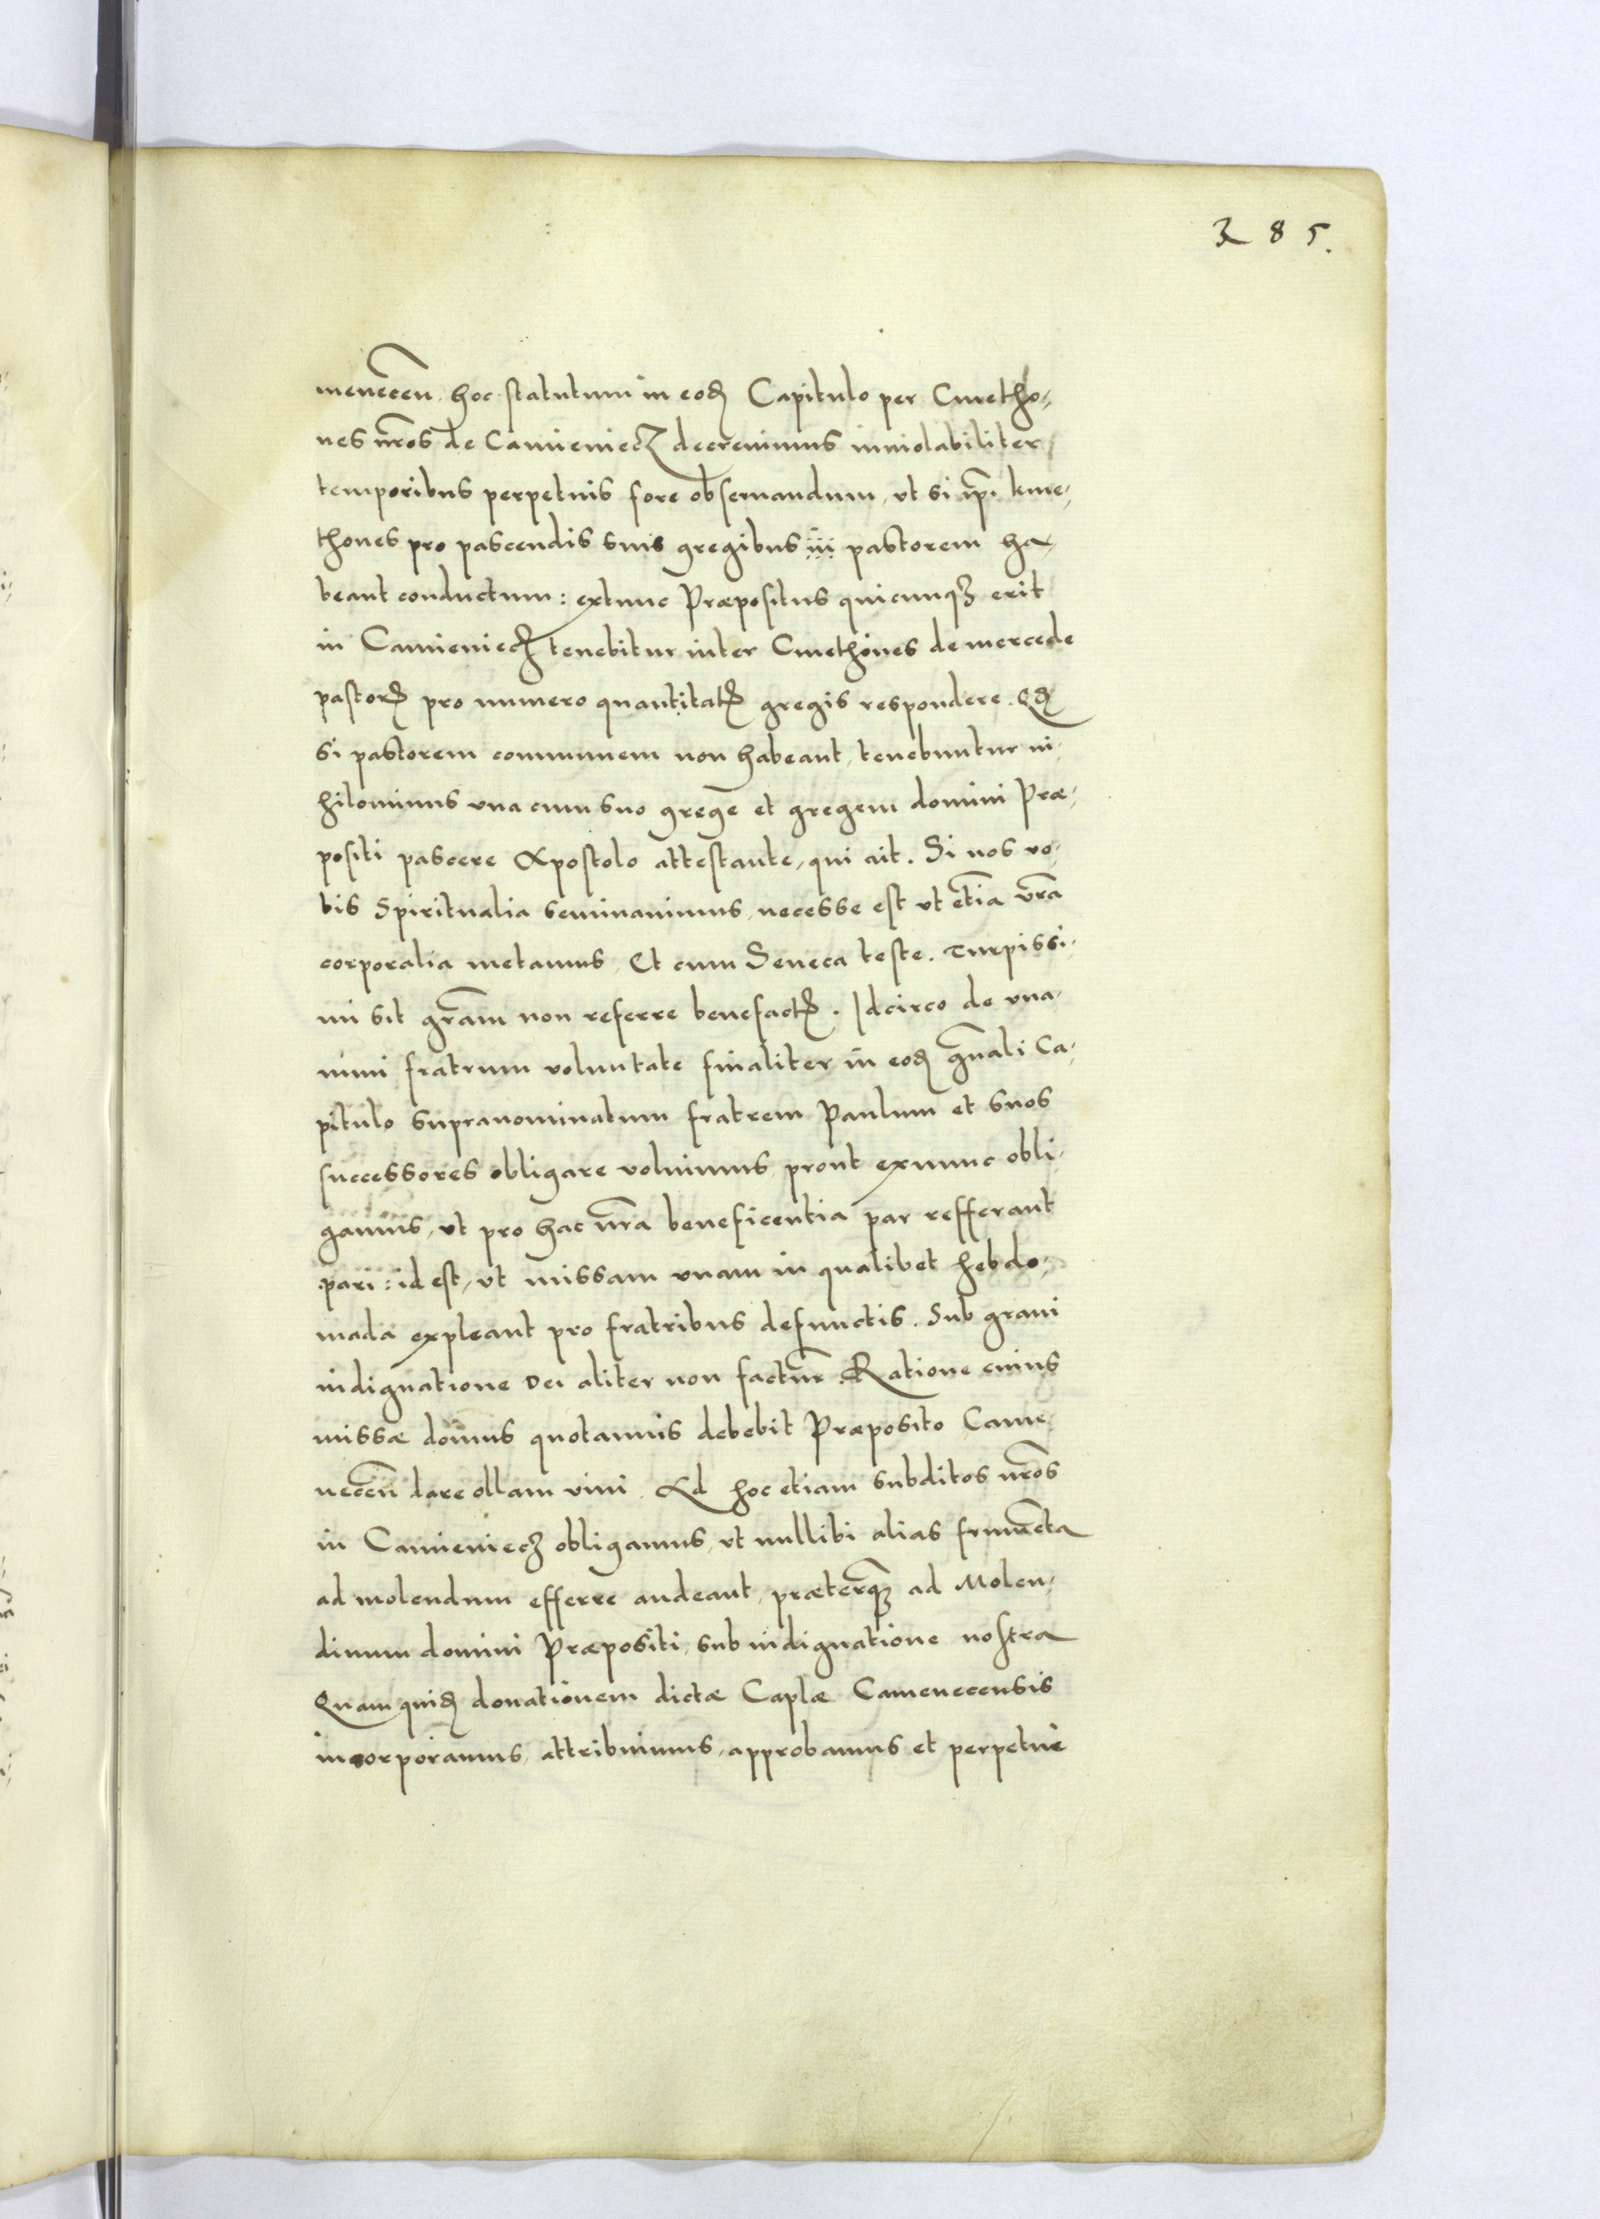 385.
menecen̄ hoc statutum in eod̄ Capitulo per Cmetho-
nes nr̄os de Camieniecz decreuimus inuiolabiliter
temporibus perpetuis fore obseruandum, vt si ip̄i kme-
thones pro pascendis suis gregibus pastorem ha-
beant conductum: extunc Præpositus quicunq₃ erit
in Camieniecz tenebitur inter Cmethones de mercede
pastor̄ pro numero quantitat̄ gregis respondere. Qd̄
si pastorem communem non habeant, tenebuntur ni-
hilominus vna cum suo gregē et gregem domini Præ-
positi pascere Apostolo attestante, qui ait. Si nos vo-
bis Spiritualia seminauimus, necesse est vt etiā vr̄a
corporalia metamus, Et cum Seneca teste. Turpissi-
mi sit gr̄am non referre benefact̄. Idcirco de vna-
nimi fratrum voluntate finaliter in eod̄ gn̄ali Ca-
pitulo supranominatum fratrem Paulum et suos
successores obligare voluimus, prout exnunc obli-
gamus, vt pro hac nr̄a beneficentia par refferant
pari: id est, vt missam vnam in qualibet hebdo-
mada expleant pro fratribus defunctis. Sub graui
indignatione Dei aliter non factur̄. Ratione cuius
missæ domus quotannis debebit Præposito Came-
necen̄ dare ollam vini. Ad hoc etiam subditos nr̄os
in Camieniecz obligamus, vt nullibi alias frumēta
ad molendum efferre audeant, præterq̄₃ ad Molen-
dinum domini Præpositi, sub indignatione nostra
Quam quid̄ donationem dictæ Caplæ Camenecensis
incorporamus, attribuimus, approbamus et perpetue